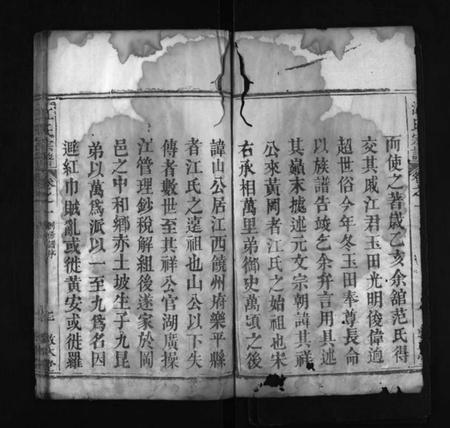 而使之著歲乙亥余館范氏得
交其戚江君玉田光明俊偉邁
超世俗今年冬玉田奉尊長命
以族譜告竣乞余弁言用具述
其巔末據述元文宗朝諱其祥
公來黃岡者江氏之始祖也宋
右承相萬里弟御史萬頃之後
諱山公居江西饒州府樂平縣
者江氏之遠祖也山公以下失
傳者數世至其祥公官湖廣操
江管理鈔稅解組後遂家於岡
邑之中和鄉赤土坡生子九昆
弟以萬爲派以一至九爲名因
避紅巾賊亂或徙黃安或徙羅
江氏宗譜
卷之一